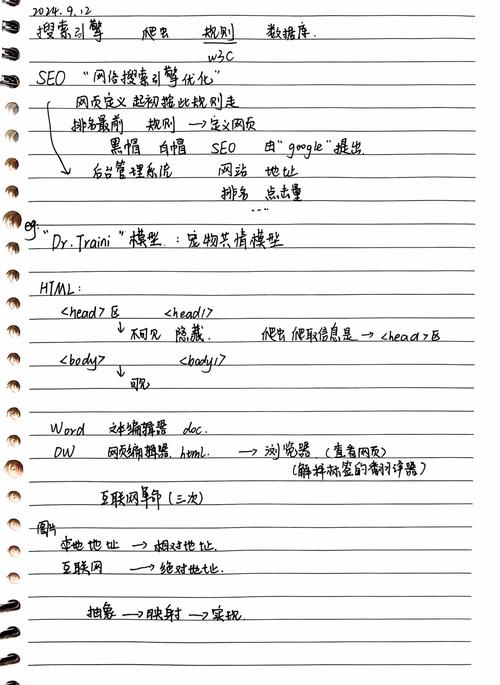 2024.9.12
搜索引擎 爬虫 规则 数据库.
W3C
SEO "网络搜索引擎优化"
网页定义 起初按此规则走
排名最前 规则 → 定义网页
黑帽 白帽 SEO 由"google"提出
后台管理系统 网站 地址
排名 点击量
...
eg:
"Dr.Traini"模型 : 宠物共情模型
HTML:
<head>区 <head/>
↓ 不可见 隐藏. 爬虫 爬取信息是 → <head>区
<body> <body/>
↓ 可见
Word 文本编辑器 doc.
DW 网页编辑器. html. → 浏览器.(查看网页)
(解释标签的翻译器)
互联网革命(三次)
图片
本地地址 → 相对地址.
互联网 → 绝对地址.
抽象 → 映射 → 实现.